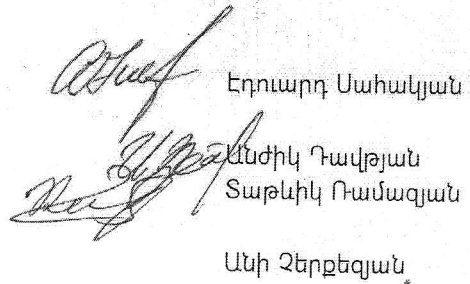 Էդուարդ Սահակյան
Անժիկ Դավթյան
Տաթևիկ Ռամազյան
Անի Չերքեզյան